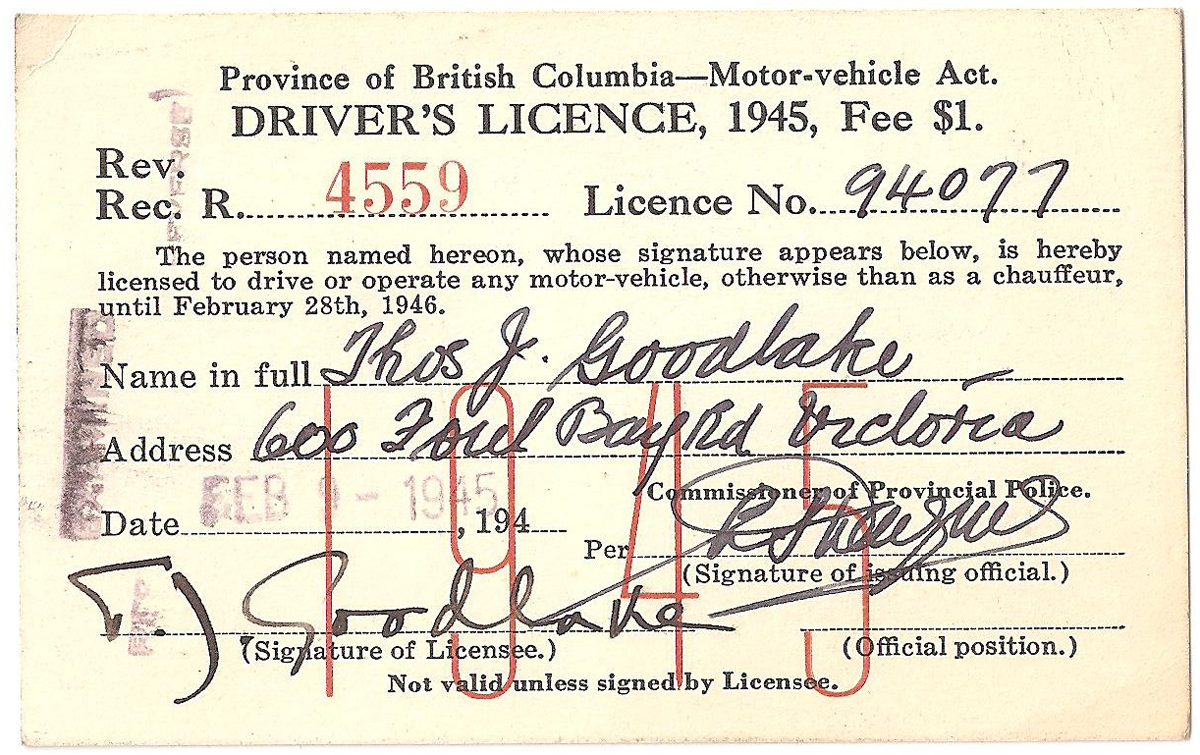 Province of British Columbia—Motor-vehicle Act.
DRIVER'S LICENCE, 1945, Fee $1.
Rev.
Rec. R. 4559 Licence No. 94077
The person named hereon, whose signature appears below, is hereby
licensed to drive or operate any motor-vehicle, otherwise than as a chauffeur,
until February 28th, 1946.
Name in full Thos J. Goodlake
Address 600 Foul Bay Rd Victoria
1945
Commissioner of Provincial Police.
Date FEB 9 - 1945, 194
Per
(Signature of issuing official.)
T. J Goodlake
(Signature of Licensee.) (Official position.)
Not valid unless signed by Licensee.